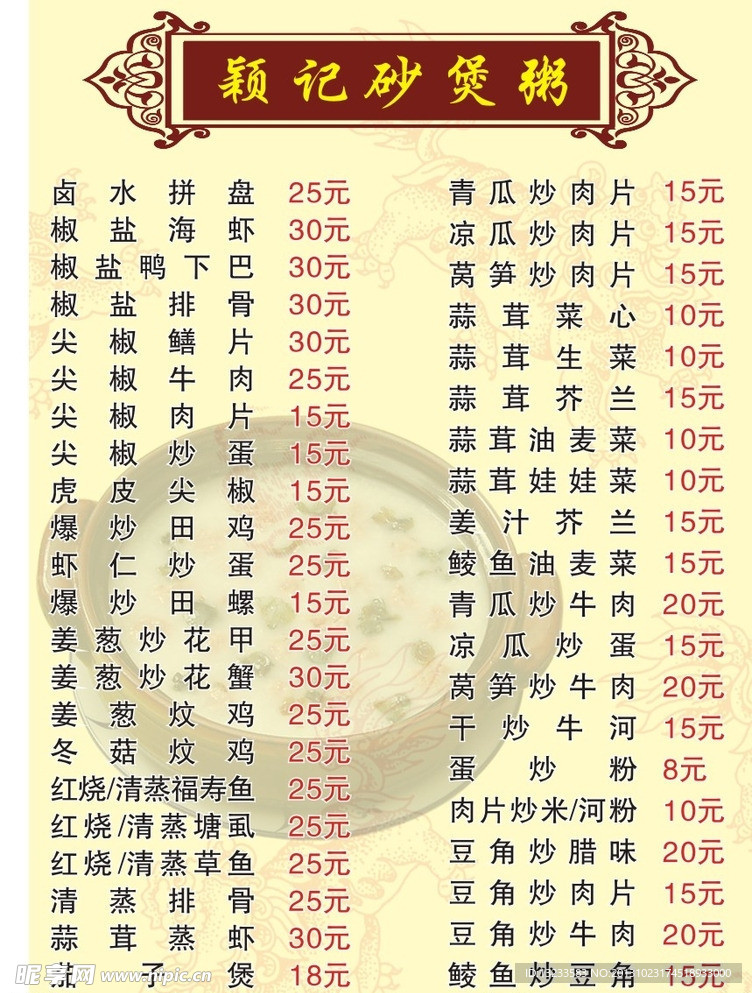 颖记砂煲粥
卤水拼盘 25元
椒盐海虾 30元
椒盐鸭下巴 30元
椒盐排骨 30元
尖椒鳝片 30元
尖椒牛肉 25元
尖椒肉片 15元
尖椒炒蛋 15元
虎皮尖椒 15元
爆炒田鸡 25元
虾仁炒蛋 25元
爆炒田螺 15元
姜葱炒花甲 25元
姜葱炒花蟹 30元
姜葱炆鸡 25元
冬菇炆鸡 25元
红烧/清蒸福寿鱼 25元
红烧/清蒸塘虱 25元
红烧/清蒸草鱼 25元
清蒸排骨 25元
蒜茸蒸虾 30元
茄子煲 18元
青瓜炒肉片 15元
凉瓜炒肉片 15元
莴笋炒肉片 15元
蒜茸菜心 10元
蒜茸生菜 10元
蒜茸芥兰 15元
蒜茸油麦菜 10元
蒜茸娃娃菜 10元
姜汁芥兰 15元
鲮鱼油麦菜 15元
青瓜炒牛肉 20元
凉瓜炒蛋 15元
莴笋炒牛肉 20元
干炒牛河 15元
蛋炒粉 8元
肉片炒米/河粉 10元
豆角炒腊味 20元
豆角炒肉片 15元
豆角炒牛肉 20元
鲮鱼炒豆角 15元
昵享网 www.nipic.cn